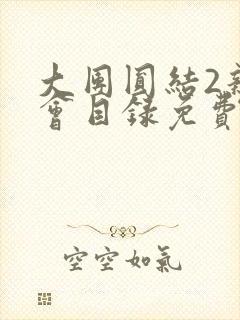 大圉圓結2新
會目錄免費
空空如氣